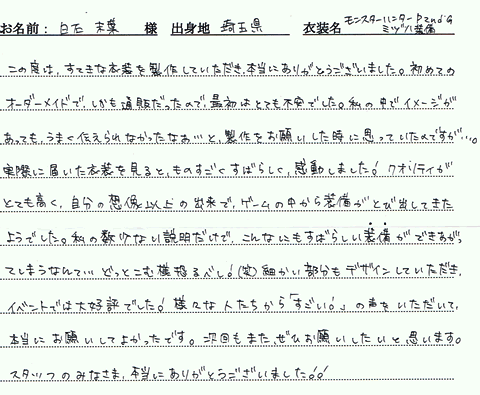 お名前： 白石 末葉 様 出身地 埼玉県 衣装名 モンスターハンターP2ndG ミヅハ装備
この度は、すてきな衣装を製作していただき、本当にありがとうございました。初めての
オーダーメイドで、しかも通販だったので、最初はとても不安でした。私の中でイメージが
あっても、うまく伝えられなかったなぁ…と、製作をお願いした時に思っていたのですが…。
実際に届いた衣装を見ると、ものすごくすばらしく、感動しました！クオリティが
とても高く、自分の想像以上の出来で、ゲームの中から装備がとび出してきた
ようでした。私の数少ない説明だけで、こんなにもすばらしい装備ができあがっ
てしまうなんて… どっとこむ様恐るべし！(笑) 細かい部分もデザインしていただき、
イベントでは大好評でした！様々な人たちから「すごい！」の声をいただいて、
本当にお願いしてよかったです。次回もまた、ぜひお願いしたいと思います。
スタッフのみなさま、本当にありがとうございました！！